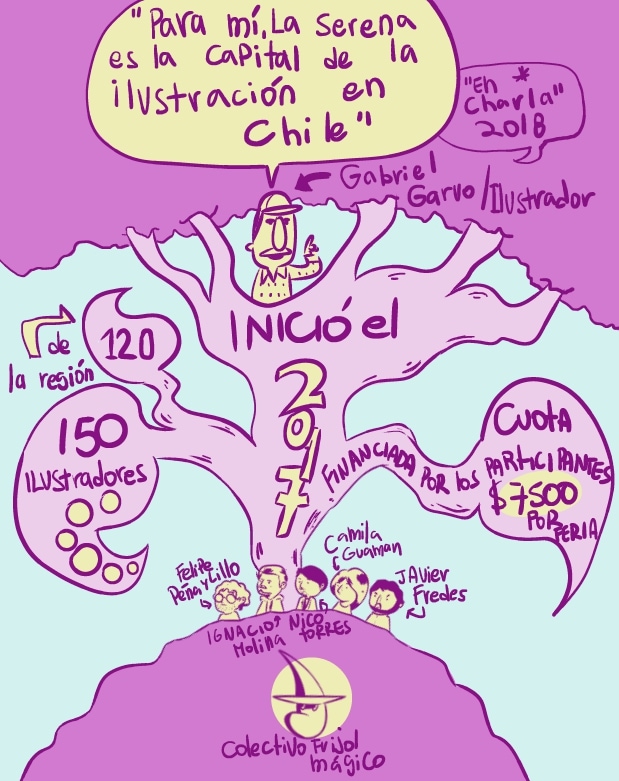 "Para mí, La Serena
es la capital de la
ilustración en
Chile"
"En *
Charla"
2018
Gabriel
Garvo / Ilustrador
INICIÓ el
2017
120
de
la región
150
ILUSTRADORES
FINANCIADA POR los PARTICIPANTES
CUOTA
$7500
POR
FERIA
Felipe
Peña y Lillo
IGNACIO
Molina
Nico
TORRES
Camila
Guaman
JAvier
Fredes
Colectivo Frijol
mágico